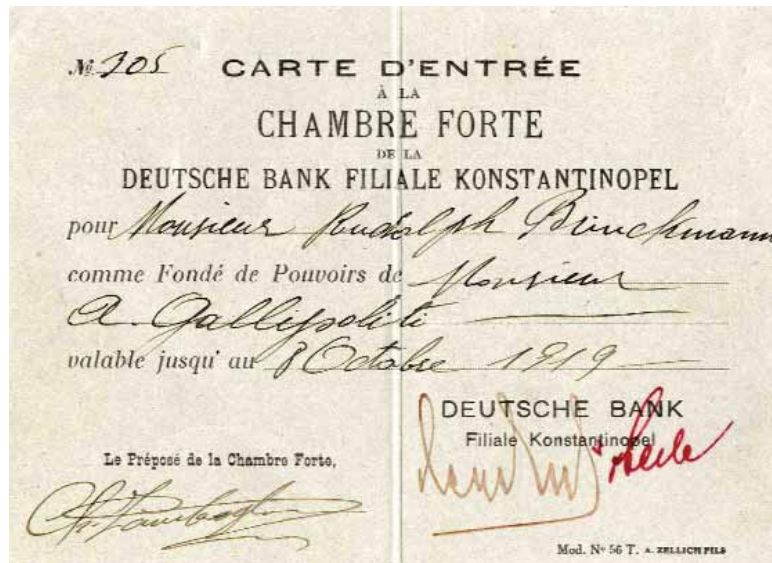 № 305 CARTE D'ENTRÉE
À LA
CHAMBRE FORTE
DE LA
DEUTSCHE BANK FILIALE KONSTANTINOPEL
pour Monsieur Rudolph Brinckmann
comme Fondé de Pouvoirs de Monsieur
A. Gallipoliti
valable jusqu' au 8 Octobre 1919
DEUTSCHE BANK
Filiale Konstantinopel
Le Préposé de la Chambre Forte,
Mod. Nº 56 T. A. ZELLICH FILS